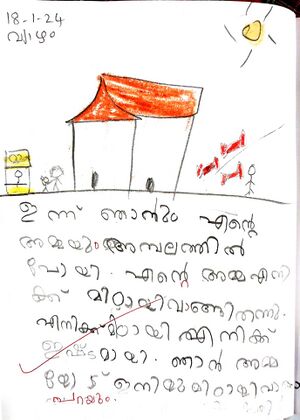 18-1-24
വ്യാഴം
ഇന്ന് ഞാനും എന്റെ
അമ്മയും അമ്പലത്തിൽ
പോയി. എന്റെ അമ്മ എനി
ക്ക് മിഠായി വാങ്ങിതന്നു.
എനിക്ക് മിഠായി എനിക്ക്
ഇഷ്ട മായി. ഞാൻ അമ്മ
യോട് ഇനിയും മിഠായി വാ
പറയും.